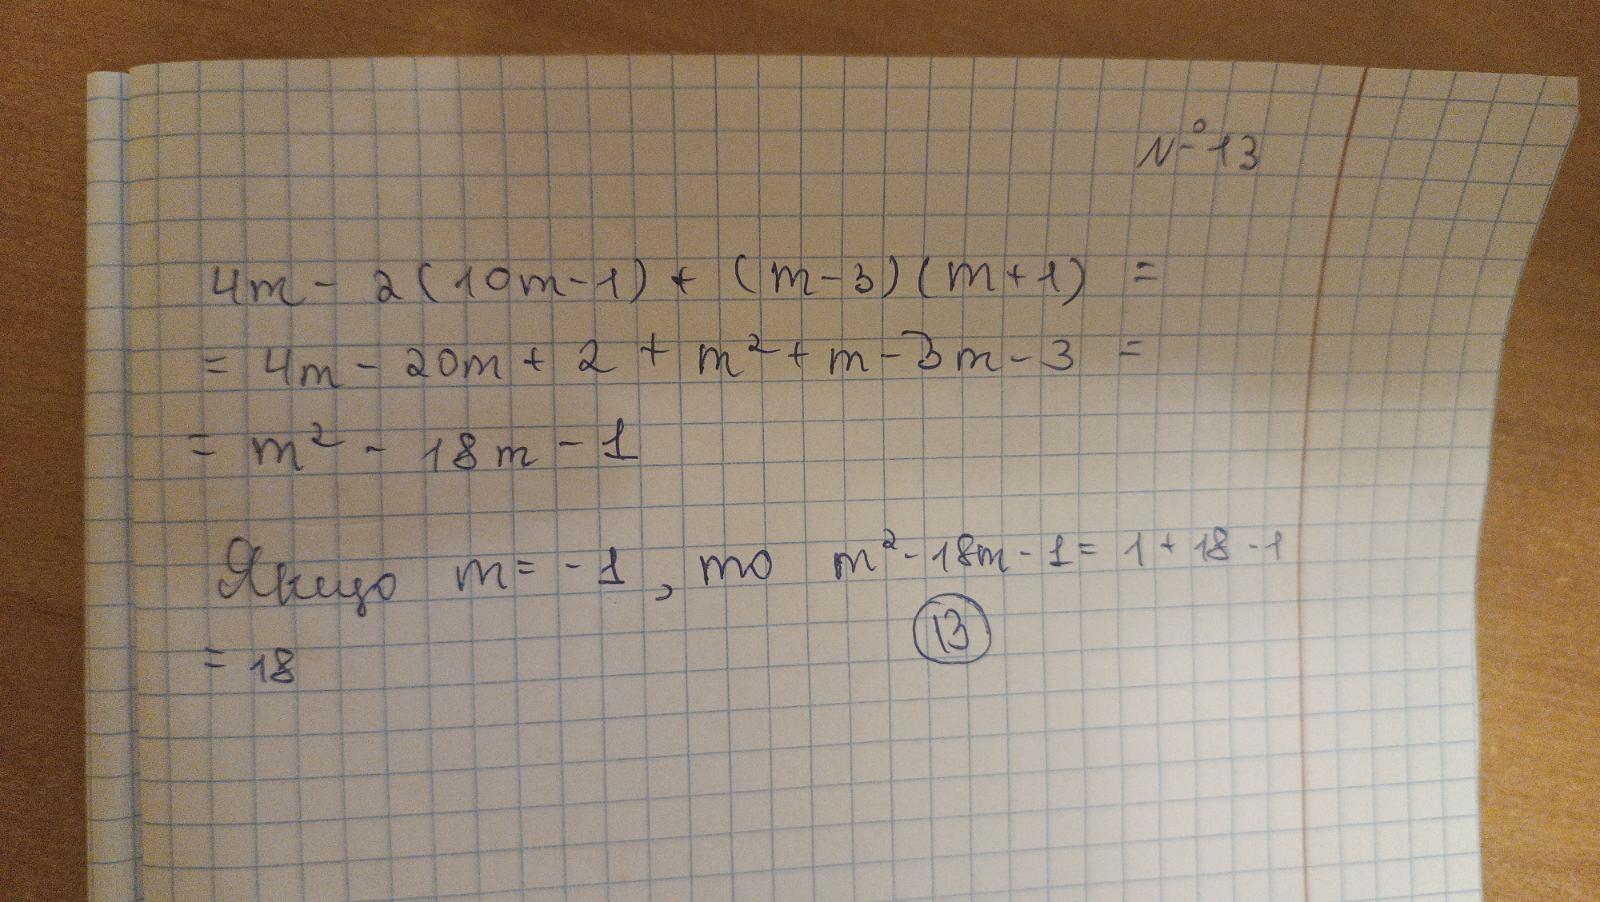 № 13
4m - 2(10m-1) + (m-3)(m+1) =
= 4m - 20m + 2 + m² + m - 3m - 3 =
= m² - 18m - 1
Якщо m = -1, то m² - 18m - 1 = 1 + 18 - 1
= 18
13